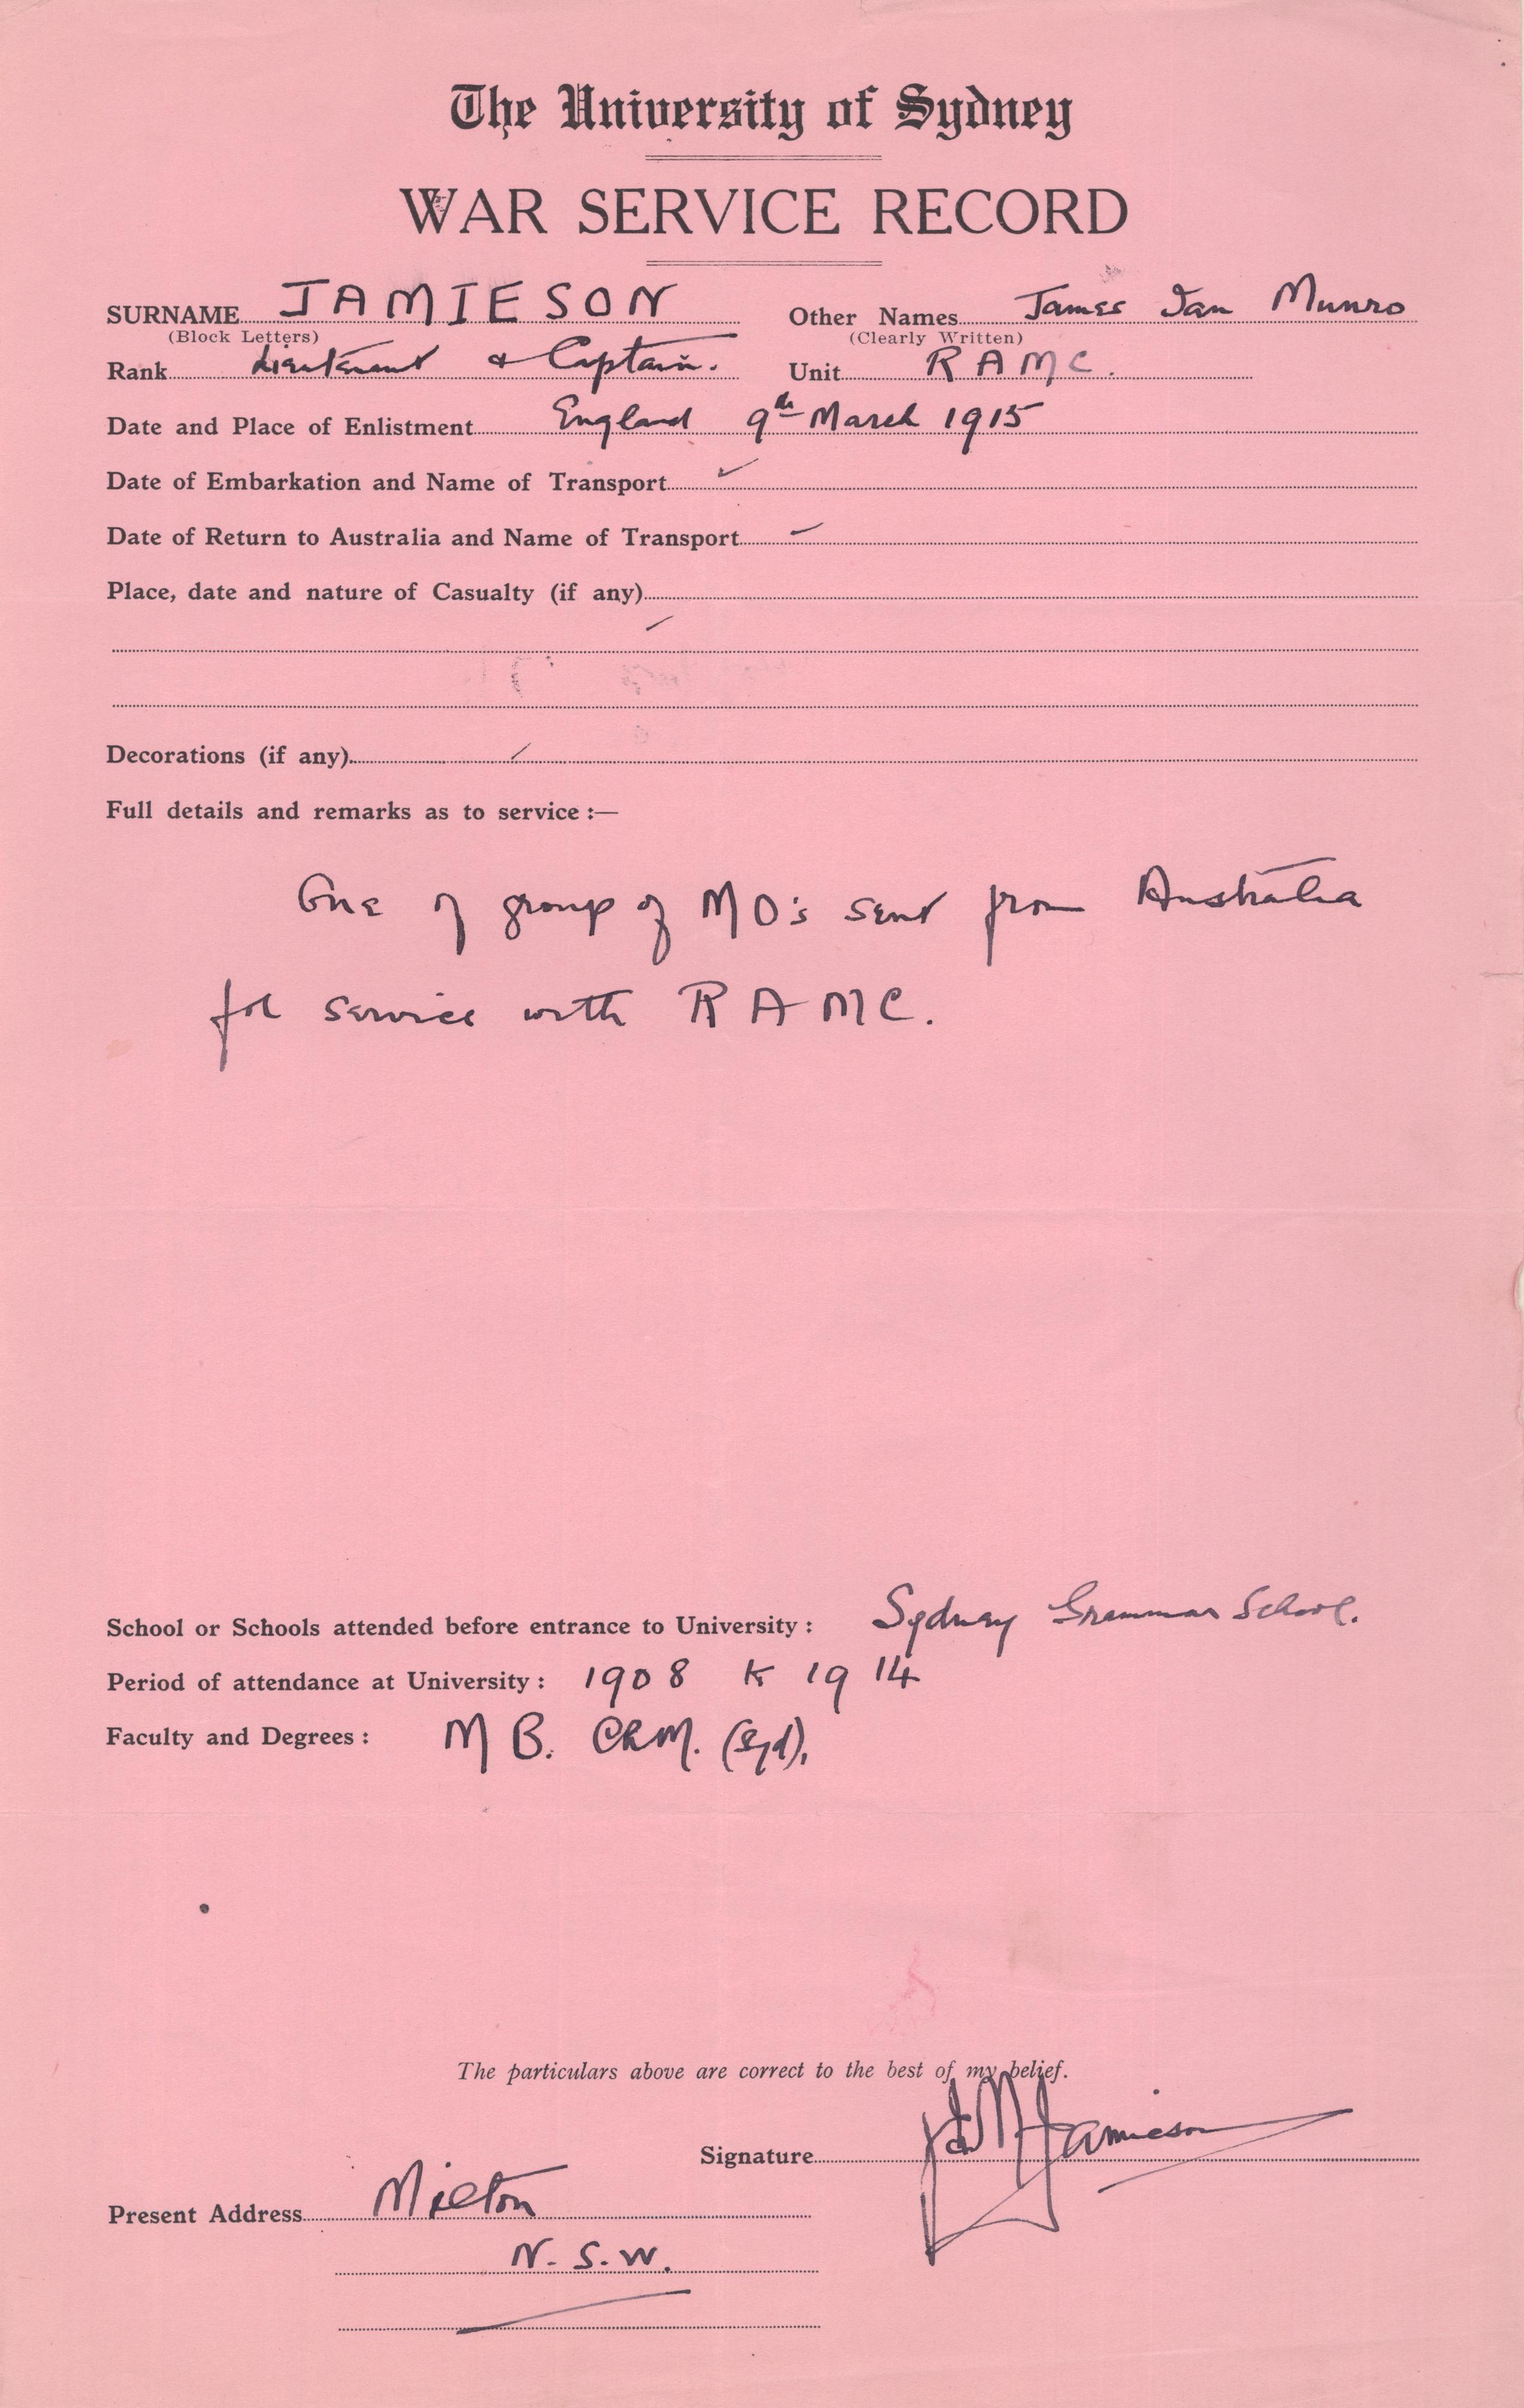 The University of Sydney
WAR SERVICE RECORD
SURNAME JAMIESON Other Names James Ian Munro
(Block Letters) (Clearly Written)
Rank Lieutenant & Captain. Unit R A M C.
Date and Place of Enlistment England 9th March 1915
Date of Embarkation and Name of Transport
Date of Return to Australia and Name of Transport
Place, date and nature of Casualty (if any)
Decorations (if any)
Full details and remarks as to service :—
One of group of MO's sent from Australia
for service with R A M C.
School or Schools attended before entrance to University : Sydney Grammar School.
Period of attendance at University : 1908 to 1914
Faculty and Degrees : M B. ChM. (Syd).
The particulars above are correct to the best of my belief.
Signature Ian M Jamieson
Present Address Milton
N. S. W.